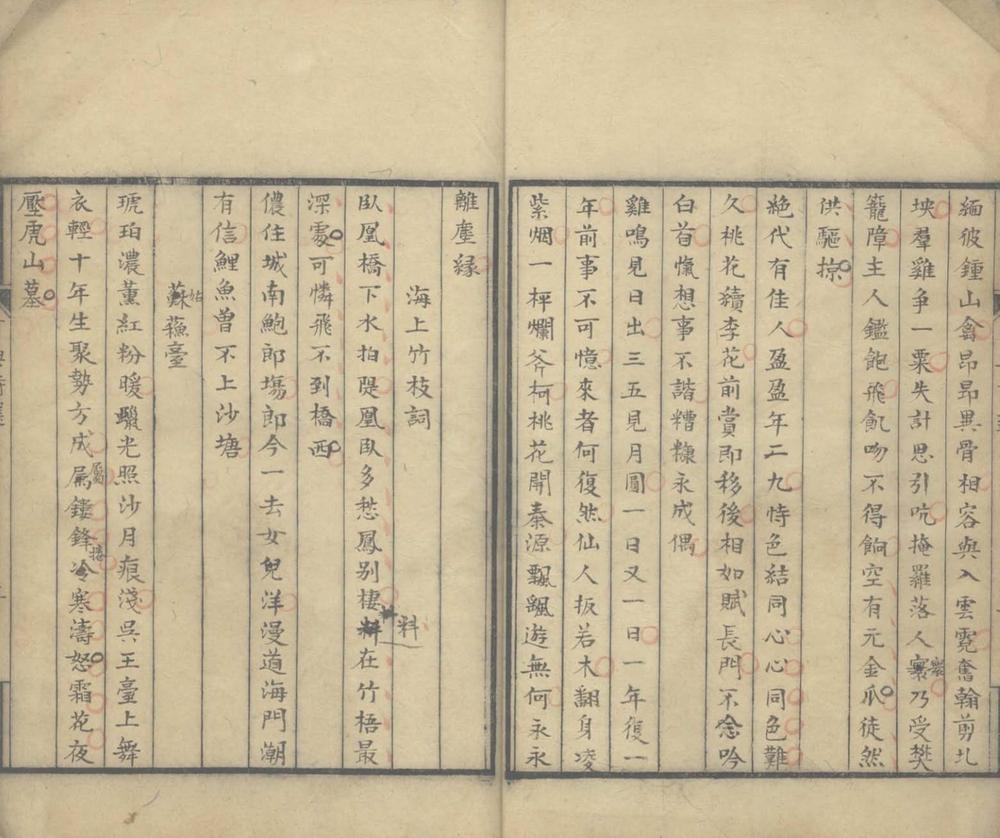 緬彼鍾山禽昂昂異骨相容與入雲霓奮翰剪北
坱羣雞争一粟失計思引吭掩羅落人寰乃受樊
籠障主人鑑飽飛飢吻不得餉空有元金爪徒然
供驅掠
絶代有佳人盈盈年二九恃色結同心心同色難
久桃花續李花前賞即移後相如賦長門不念吟
白首愾想事不諧糟糠永成偶
雞鳴見日出三五見月圓一日又一日一年復一
年前事不可憶來者何復然仙人扳若木翻身凌
紫烟一枰爛斧柯桃花開秦源飄飖遊無何永永
離塵緣
海上竹枝詞
臥凰橋下水拍隄凰臥多愁鳳别棲料在竹梧最
深處可憐飛不到橋西
儂住城南鮑郎塲郎今一去女兒洋漫道海門潮
有信鯉魚曾不上沙塘
姑蘇臺
琥珀濃薰紅粉暖蠟光照沙月痕淺吳王臺上舞
衣輕十年生聚勢方成屬鏤鋒冷寒濤怒霜花夜
壓虎山墓